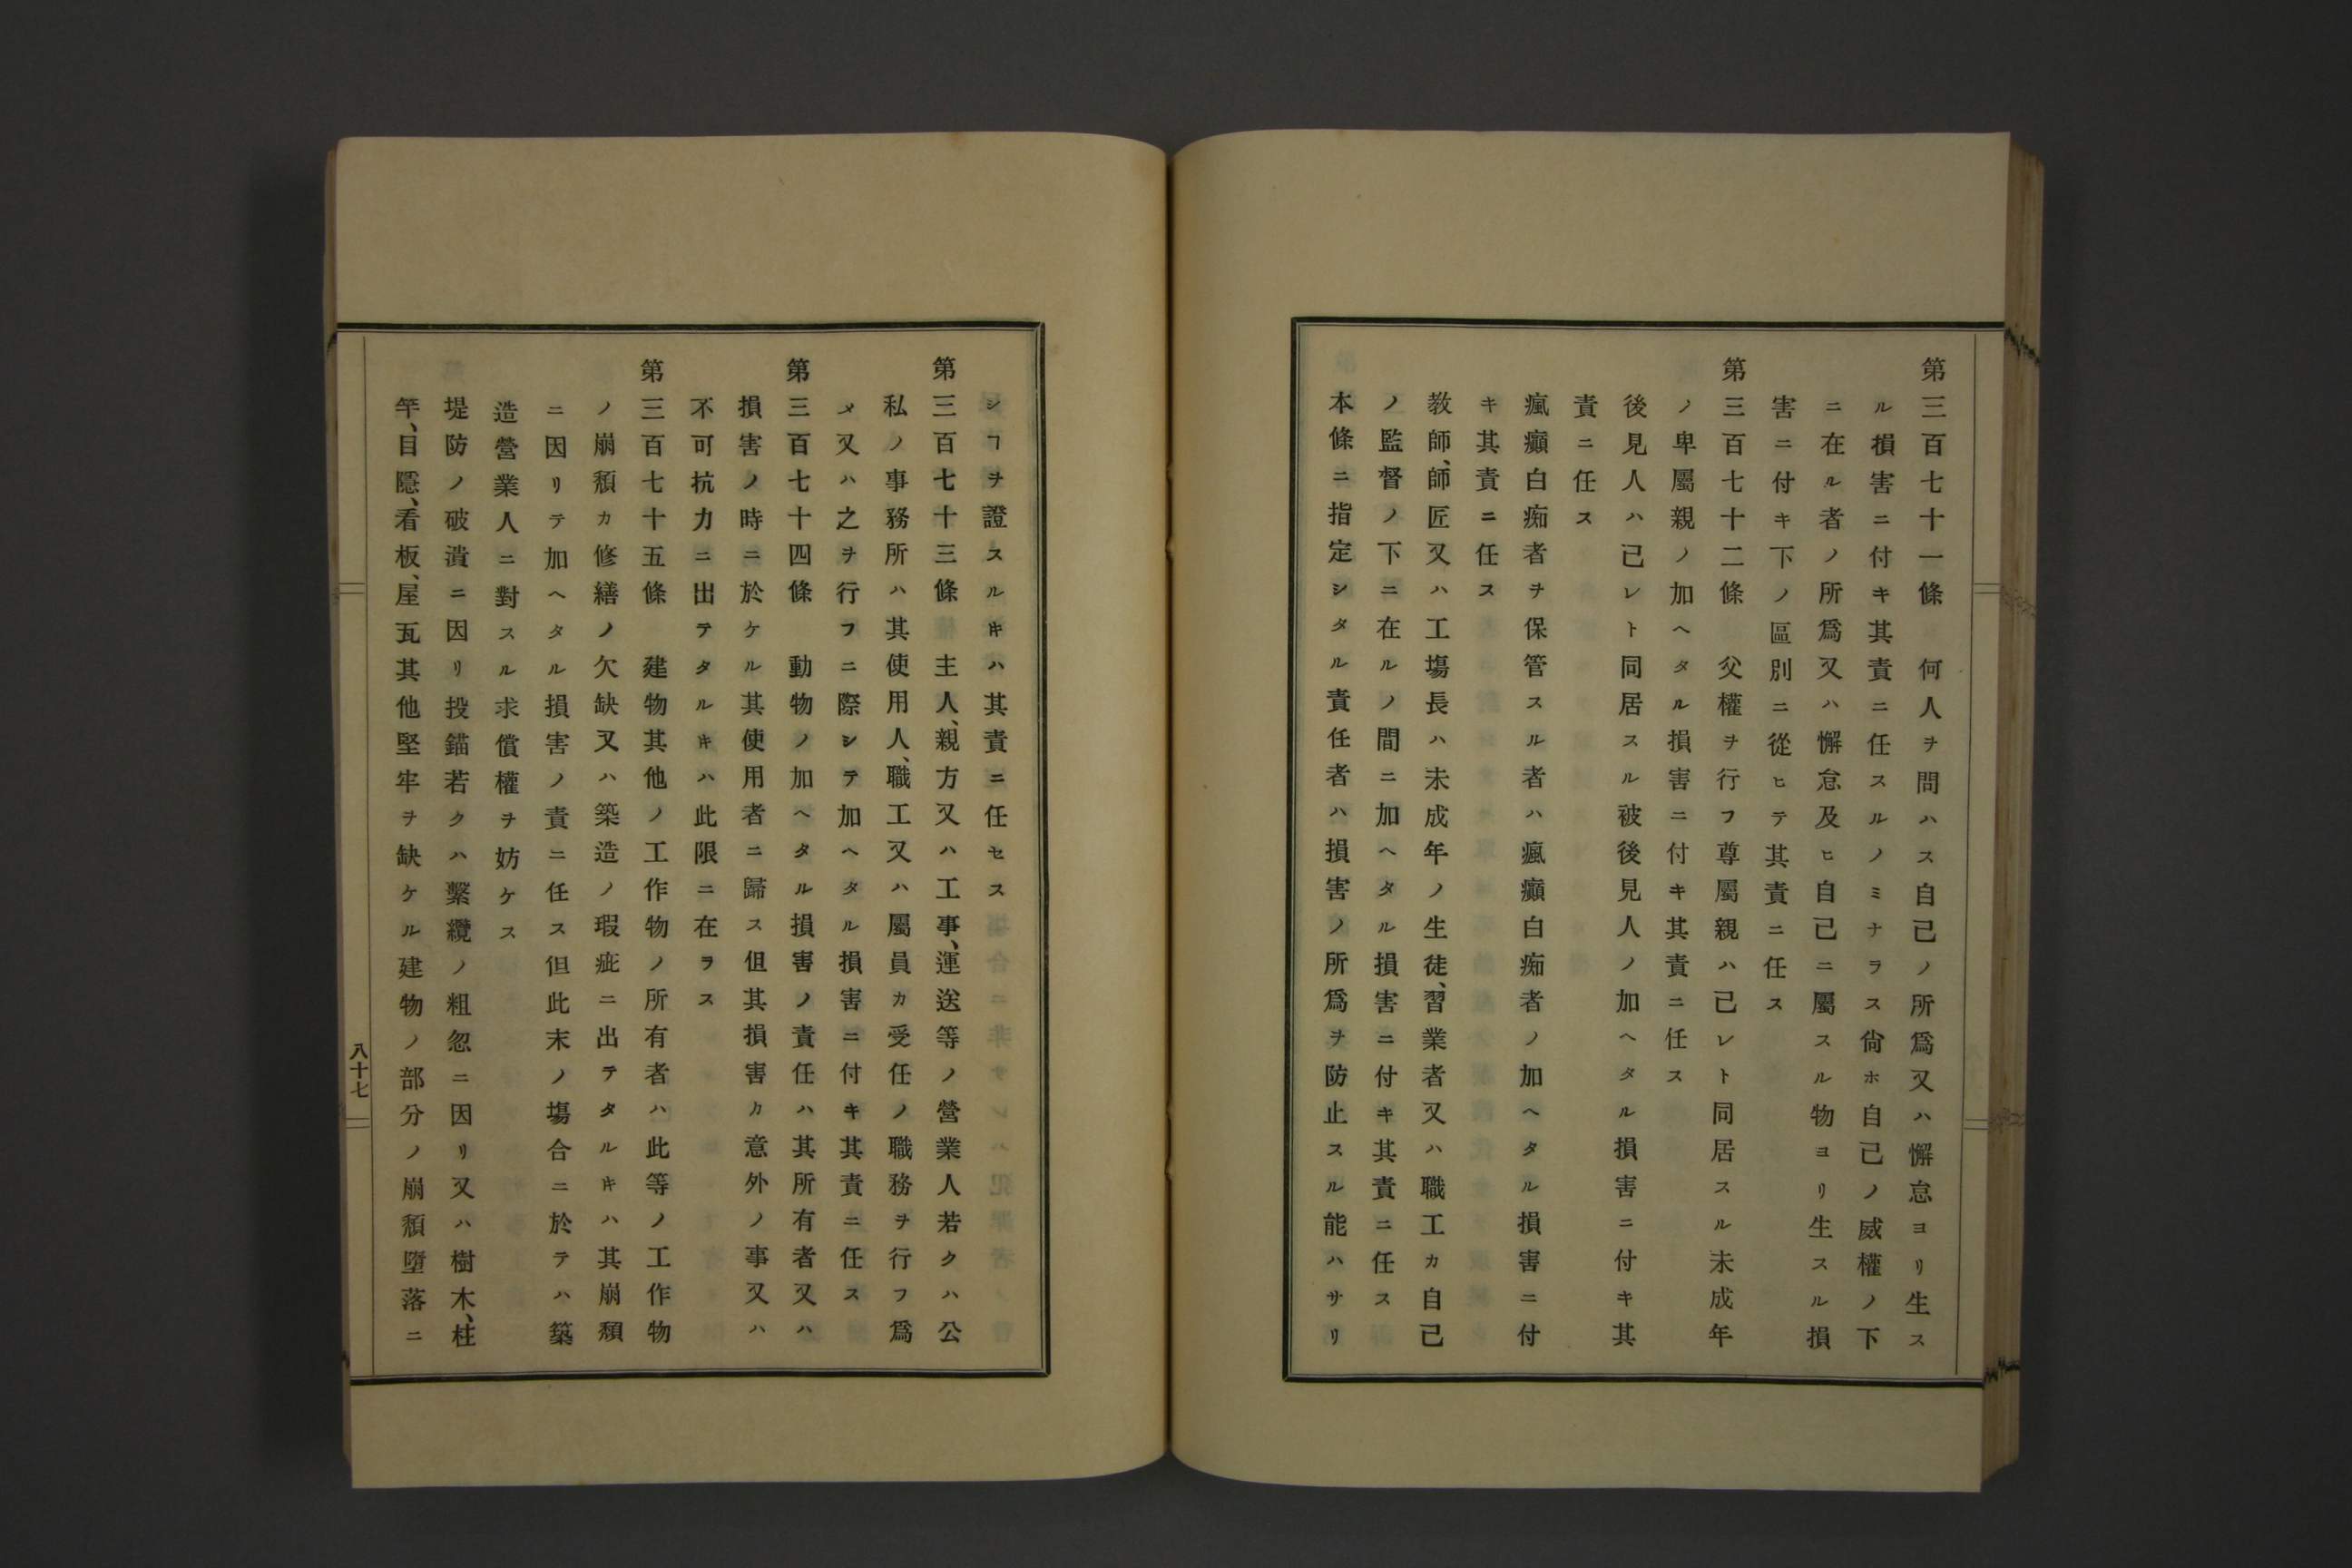 第三百七十一條　何人ヲ問ハス自己ノ所爲又ハ懈怠ヨリ生ス
ル損害ニ付キ其責ニ任スルノミナラス尙ホ自己ノ威權ノ下
ニ在ル者ノ所爲又ハ懈怠及ヒ自己ニ屬スル物ヨリ生スル損
害ニ付キ下ノ區別ニ從ヒテ其責ニ任ス
第三百七十二條　父權ヲ行フ尊屬親ハ己レト同居スル未成年
ノ卑屬親ノ加ヘタル損害ニ付キ其責ニ任ス
後見人ハ己レト同居スル被後見人ノ加ヘタル損害ニ付キ其
責ニ任ス
瘋癲白痴者ヲ保管スル者ハ瘋癲白痴者ノ加ヘタル損害ニ付
キ其責ニ任ス
敎師、師匠又ハ工塲長ハ未成年ノ生徒、習業者又ハ職工カ自己
ノ監督ノ下ニ在ルノ間ニ加ヘタル損害ニ付キ其責ニ任ス
本條ニ指定シタル責任者ハ損害ノ所爲ヲ防止スル能ハサリ
シヿヲ證スルキハ其責ニ任セス
第三百七十三條　主人、親方又ハ工事、運送等ノ營業人若クハ公
私ノ事務所ハ其使用人、職工又ハ屬員カ受任ノ職務ヲ行フ爲
メ又ハ之ヲ行フニ際シテ加ヘタル損害ニ付キ其責ニ任ス
第三百七十四條　動物ノ加ヘタル損害ノ責任ハ其所有者又ハ
損害ノ時ニ於ケル其使用者ニ歸ス但其損害カ意外ノ事又ハ
不可抗力ニ出テタルキハ此限ニ在ラス
第三百七十五條　建物其他ノ工作物ノ所有者ハ此等ノ工作物
ノ崩頽カ修繕ノ欠缺又ハ築造ノ瑕疵ニ出テタルキハ其崩頽
ニ因リテ加ヘタル損害ノ責ニ任ス但此末ノ塲合ニ於テハ築
造營業人ニ對スル求償權ヲ妨ケス
堤防ノ破潰ニ因リ投錨若クハ繫纜ノ粗忽ニ因リ又ハ樹木、柱
竿、目隱、看板、屋瓦其他堅牢ヲ缺ケル建物ノ部分ノ崩頽墮落ニ
八十七